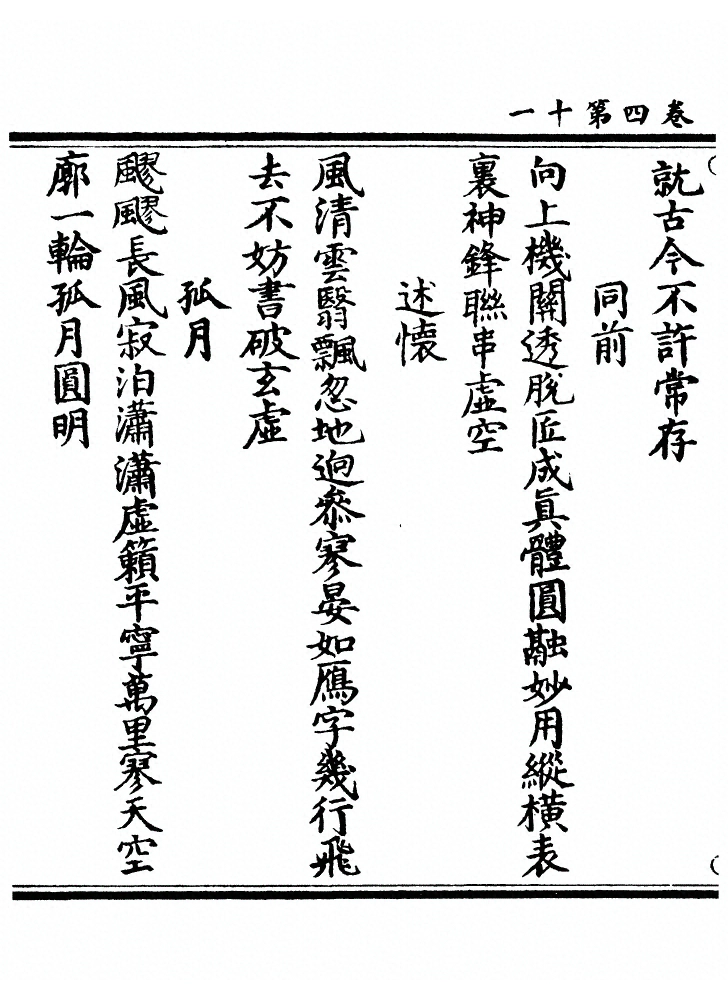 卷四第十一
就古今不許常存
同前
向上機關透脫匝成眞體圓融妙用縱橫表
裏神鋒聯串虛空
述懷
風清雲翳飄忽地迥叅寥晏如鴈字幾行飛
去不妨書破玄虛
孤月
飂飂長風寂泊瀟瀟虛籟平寧萬里寥天空
廓一輪孤月圓明